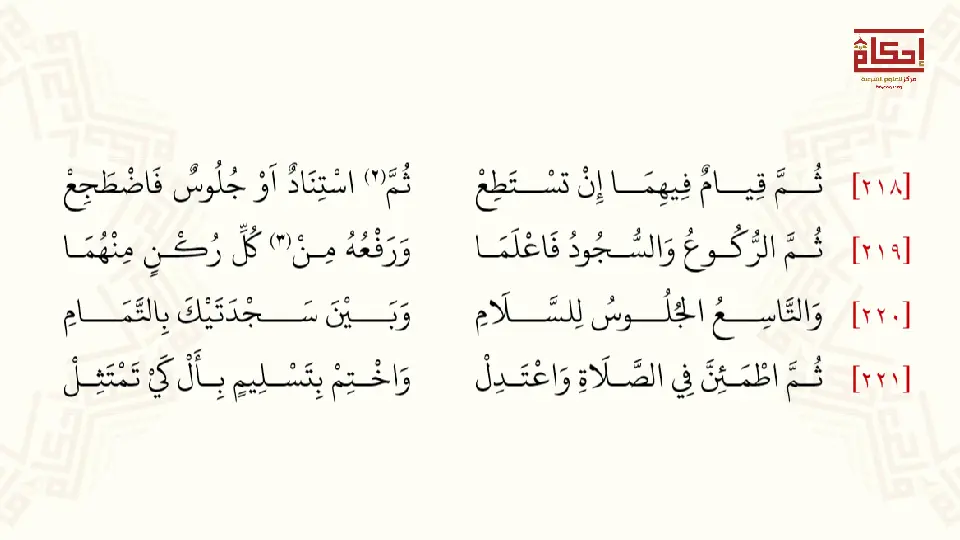 إحكام
مركز للعلوم الشرعية
[٢١٨] ثُـمَّ قِيَـامٌ فِيهِمَـا إِنْ تَسْـتَطِعْ ثُمَّ(٢) اسْتِنَادٌ اَوْ جُلُوسٌ فَاضْطَجِعْ
[٢١٩] ثُـمَّ الرُّكُـوعُ وَالسُّـجُودُ فَاعْلَمَـا وَرَفْعُهُ مِـنْ(٣) كُلِّ رُكْـنٍ مِنْهُمَـا
[٢٢٠] وَالتَّاسِـعُ الجُلُـوسُ لِلسَّـلَامِ وَبَـيْنَ سَـجْدَتَيْكَ بِالتَّمَـامِ
[٢٢١] ثُـمَّ اطْمَـئِنَّ فِي الصَّـلَاةِ وَاعْتَـدِلْ وَاخْـتِمْ بِتَسْـلِيمٍ بِـأَلْ كَيْ تَمْتَثِـلْ